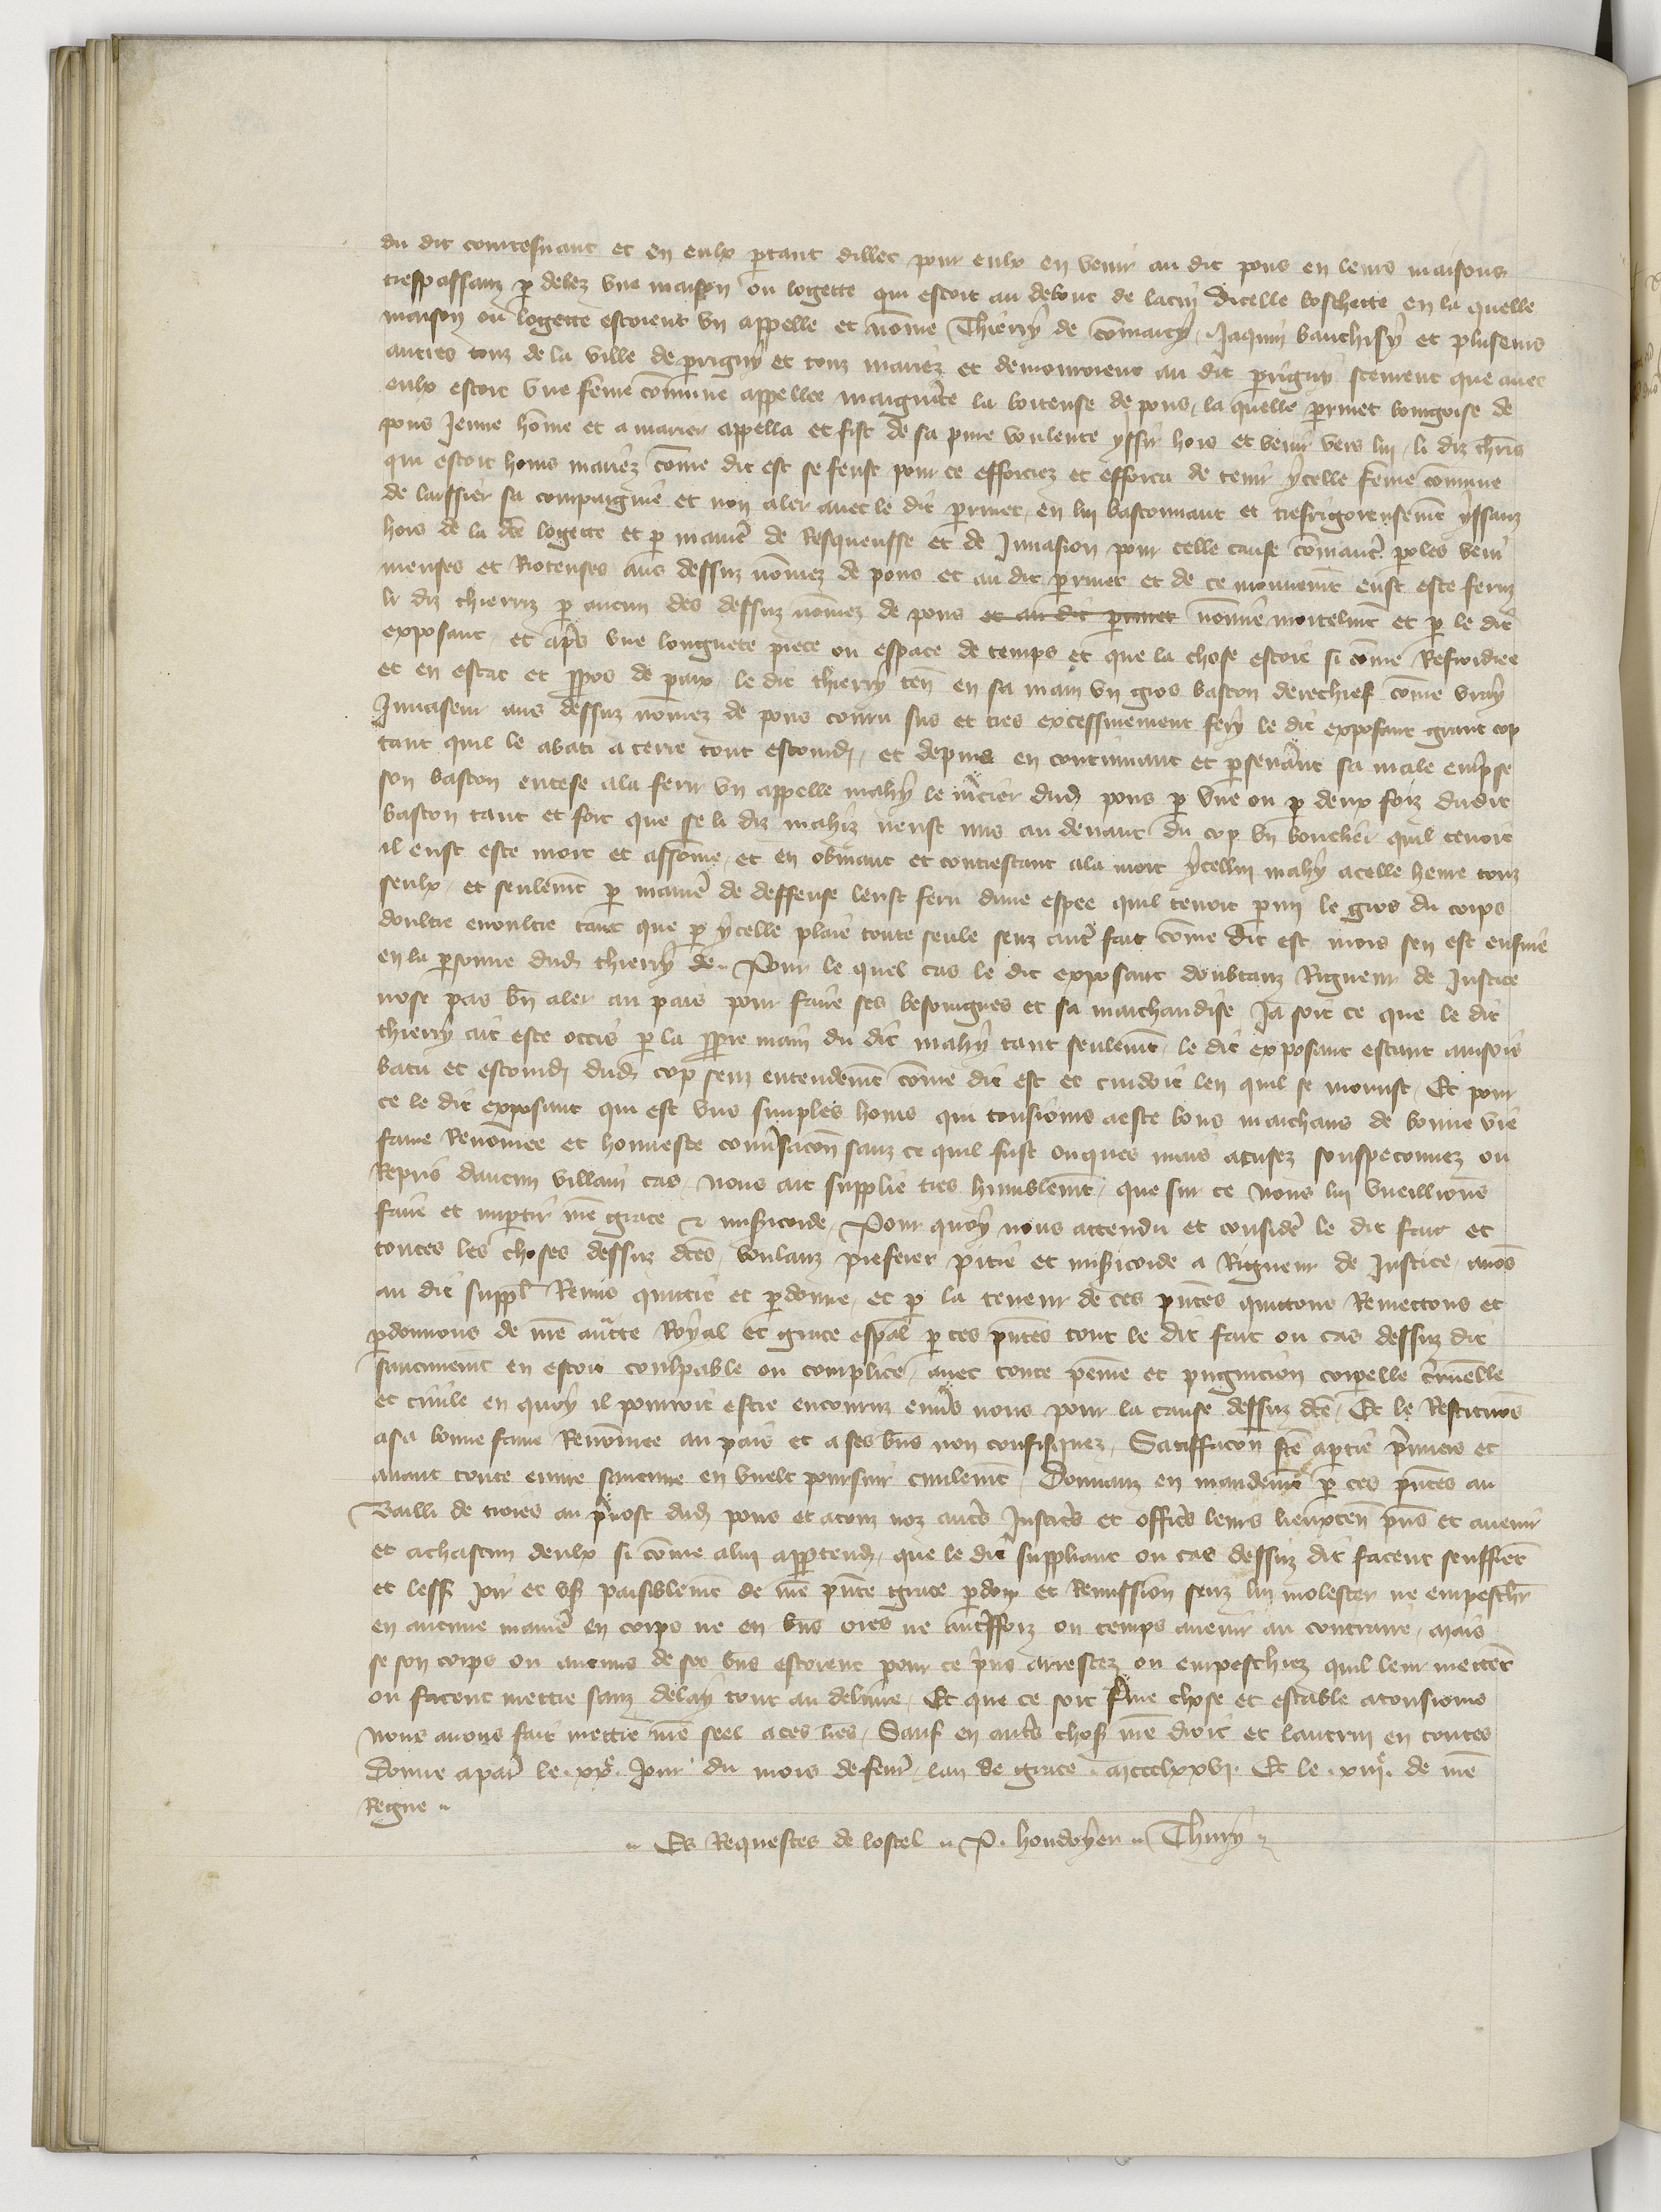 du dit conitesnant et en eulx ꝑtant dillec pour eulx en venir au dit pons en leurs maisons
trespassanz ꝑ delez vne maison ou logette qui estoit au debout de lacin dicelle boschette en la quelle
maison ou logette estoient vn appelle et nōme Thierry de cōmarcy, Jaquin bauchisy et pluseurs
autres touz de la ville de prigny et touz mariez et demouroient au dit prigny scement que auec
eulx estoit vne fēme cōmune appellee margrite la boiteuse de pons, la quelle ꝑrinet bourgoise de
pons Jenne hōme et a marier appella et fist de sa pure voulente yssir hors et venir vers lui, li diz thris
qui estoit homs mariez cōme dit est se feust pour ce efforciez et efforca de tenir ycelle fēme cōmune
de laissier sa compaignie et non aler auec le dit ꝑrinet, en lui bastonnant et tresrigoreusemēt yssanz
hors de la dc̄e logette et ꝑ manie᷑ de Resqueusse et de Inuasion pour celle cause cōmanc᷑ ꝑoles veni
meuses et Rioteuses aus dessuz nōmez de pons et au dit ꝑrinet et de ce mouuemēt eust este feruz
li diz thierriz ꝑ aucun des dessuz nōmez de pons et au dit ꝑrinet nonme mortelmt̄ et ꝑ le dit
exposant, et apꝰs vne longuete piece ou espace de temps et que la chose estoit si cōme Refroidiee
et en estat et ꝓpos de paix, le dit thierry ten̄ en sa main vn gros baston derechief cōme vray
Inuaseur aus dessuz nōmez de pons couru sus et tres excessiuement fery le dit exposant grant cop
tant quil le abati a terre tout estourdj, et depuis en continuant et ꝑseuerant sa male emp̄se
son baston entese ala ferir vn appelle mahy le m̄cier dud pons ꝑ vne ou ꝑ deux foiz dudit
baston tant et fort que se li diz mahiz neust mis au deuant du cop vn bouchier quil tenoit
il eust este mort et assōme, et en obuiant et contrestant ala mort ycellui mahy acelle heure touz
seulx, et seulemt̄ ꝑ manie᷑ de deffense leust feru dune espee quil tenoit ꝑmi le gros du corps
doultre enoultre tant que ꝑ ycelle plaie toute seule senz aut᷑ fait cōme dit est mors sen est ensuie
en la ꝑsonne dud thierry de. Pour le quel cas le dit exposant doubtanz Rigueur de Justice
nose pas bn̄ aler au pais pour faire ses besoingnes et sa marchandise Ja soit ce que le dit
thierry ait este occis ꝑ la ꝓpre main du dit mahy tant seulemt̄, le dit exposant estant ainsois
batu et estourdj dud cop senz entendemt̄ cōme dit est et cuidoit len quil se mourust, Et pour
ce le dit exposant qui est vns simples homs qui tousiours aeste bons marchans de bonne vie
fame Renōmee et honneste conu᷑sacōn sanz ce quil fust onques mais acusez souspeconnez ou
Repris daucun villain cas, nous ait supplie tres humblemt̄, que sur ce nous lui vueillions
faire et imꝑtir nr̄e grace & mis᷑icorde, Pour quoy nous attendu et conside᷑ le dit fait et
toutes les choses dessuz dc̄es, voulanz preferer pitie et mis᷑icorde a Rigueur de Justice, auōs
au dit suppl̄ Remis quittie et ꝑdonne, et ꝑ la teneur de ces pn̄tes quittons Remettons et
ꝑdonnons de nr̄e auc̄te Royal et grace esp̄al ꝑ ces pn̄tes tout le dit fait ou cas dessuz dit
saucument en estoit coulpable ou complice, auec toute peine et pugnicion corꝑelle c᷑mēlle
et ciuile en quoy il pourroit estre encouruz enu᷑s nous pour la cause dessuz dc̄e, Et le Restituōs
asa bonne fame Renōmee au pais et a ses bn̄s non confisquez, Satiffacōn fc̄e aꝑtie p᷑miers et
auant toute euure saucune en vuelt poursuir ciuilemt̄, Donnanz en mandemt̄ ꝑ ces pn̄tes au
Bailli de troies au p᷑uost dud pons et atouz noz aut᷑s Justic᷑s et offic᷑s leurs lieuxten̄ pn̄s et auenir
et achascun deulx si cōme alui aꝑꝑtendj, que le dit suppliant ou cas dessuz dit facent seuffret̄
et less̄ Joir et vs̄ paisiblemt̄ de nr̄e pn̄te grace ꝑdon et Remission senz lui molester ne empesch᷑
en aucune manie᷑ en corps ne en bn̄s ores ne aut᷑ffoiz ou temps auenir au contraire, mais
se son corps ou aucuns de ses bn̄s estoient pour ce pris arrestez ou empeschiez quil leur mettēt
ou facent mettre sanz delay tout au deliure, Et que ce soit f᷑me chose et estable atousiours
nous auons fait mettre nr̄e seel aces lr̄es, Sauf en aut᷑s chos̄ nr̄e droit et lautrui en toutes
Donne apar᷑ le .xxᵉ. Jour du mois defeur᷑, lan de grace .mccclxxvj. Et le .xiijᵉ. de nr̄e
Regne ..
.. Es Requestes de lostel .. P. houdoyer .. Thury ..